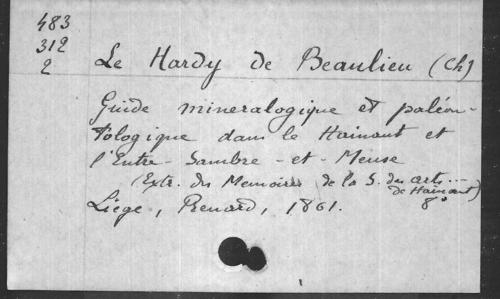 483
312
2
Le Hardy de Beaulieu (Ch)
Guide mineralogique et paléon-
tologique dans le Hainaut et
l'Entre-Sambre-et-Meuse
(Extr. des Memoires de la S. des arts...
de Hainaut)
Liége, Renard, 1861. 8°